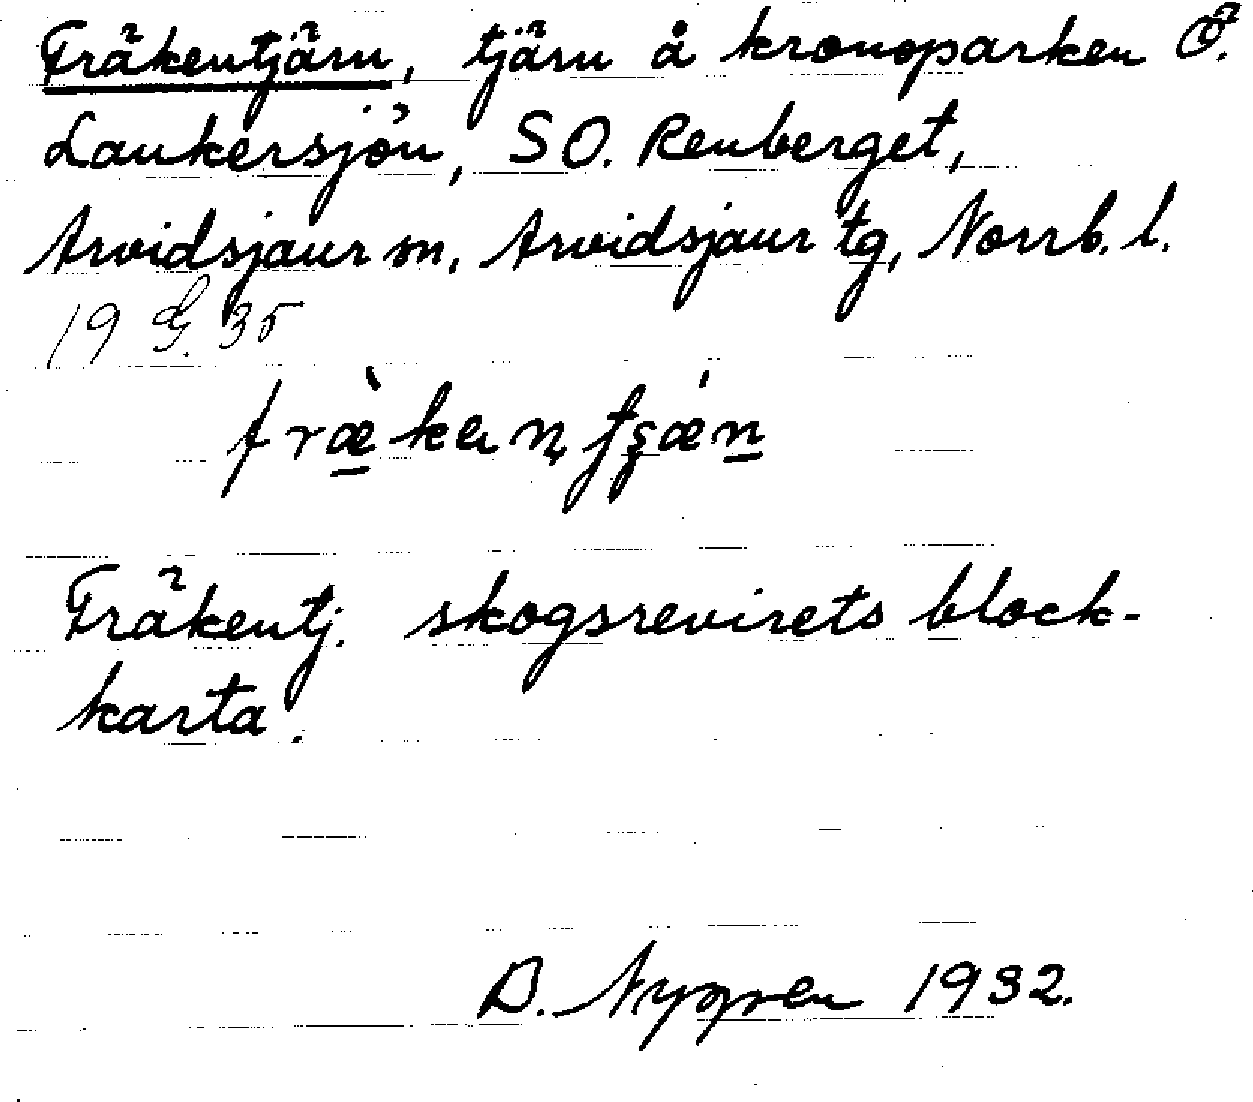 Fräkentjärn, tjärn å kronoparken Ö.
Laukersjön, SO. Renberget,
Arvidsjaur sn, Arvidsjaur tg, Norrb. l.
19 35
Fräkentj. skogsrevirets block-
karta.
D. Nygren 1932.